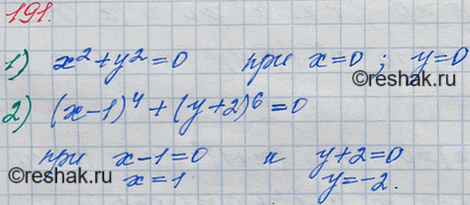 191.
1) x² + y² = 0 при x = 0 ; y = 0
2) (x - 1)⁴ + (y + 2)⁶ = 0
при x - 1 = 0 и y + 2 = 0
x = 1 y = -2.
©Reshak.ru